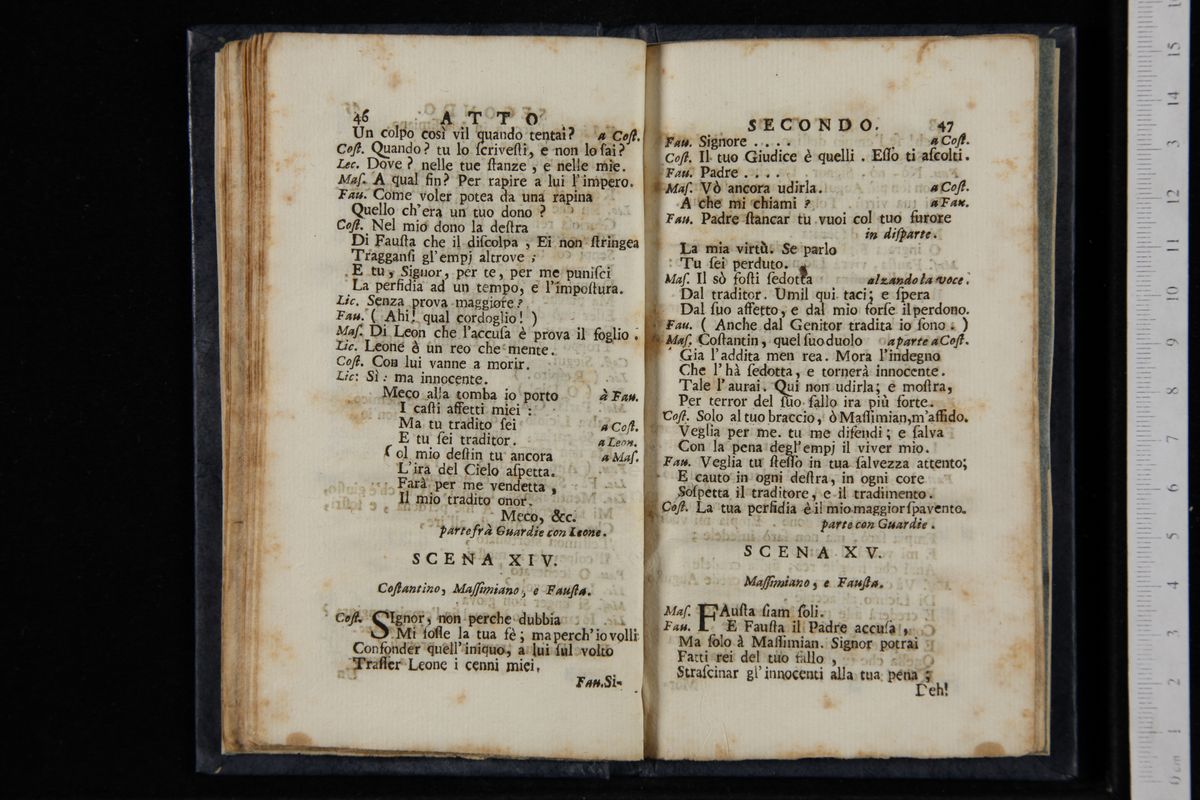 46 ATTO
Un colpo così vil quando tentai? a Coſt.
Coſt. Quando? tu lo ſcriveſti, e non lo ſai?
Lec. Dove? nelle tue ſtanze, e nelle mie.
Maſ. A qual fin? Per rapire a lui l'impero.
Fau. Come voler potea da una rapina
Quello ch'era un tuo dono?
Coſt. Nel mio dono la deſtra
Di Fauſta che il diſcolpa, Ei non ſtringea
Tragganſi gl'empj altrove;
E tu, Signor, per te, per me puniſci
La perfidia ad un tempo, e l'impoſtura.
Lic. Senza prova maggiore?
Fau. (Ahi! qual cordoglio!)
Maſ. Di Leon che l'accuſa è prova il foglio.
Lic. Leone è un reo che mente.
Coſt. Con lui vanne a morir.
Lic: Sì: ma innocente.
Meco alla tomba io porto à Fau.
I caſti affetti miei:
Ma tu tradito ſei a Coſt.
E tu ſei traditor. a Leon.
Col mio deſtin tu ancora a Maſ.
L'ira del Cielo aſpetta.
Farà per me vendetta,
Il mio tradito onor.
Meco, &c.
parte frà Guardie con Leone.
SCENA XIV.
Coſtantino, Maſſimiano, e Fauſta.
Coſt. SIgnor, non perche dubbia
Mi foſſe la tua fè; ma perch'io volli
Confonder quell'iniquo, a lui ſul volto
Traſſer Leone i cenni miei.
Fau. Si-
SECONDO. 47
Fau. Signore .... a Coſt.
Coſt. Il tuo Giudice è quelli. Eſſo ti aſcolti.
Fau. Padre ....
Maſ. Vò ancora udirla. a Coſt.
A che mi chiami? a Fau.
Fau. Padre ſtancar tu vuoi col tuo furore
in diſparte.
La mia virtù. Se parlo
Tu ſei perduto.
Maſ. Il sò foſti ſedotta alzando la voce.
Dal traditor. Umil qui taci; e ſpera
Dal ſuo affetto, e dal mio forſe il perdono.
Fau. (Anche dal Genitor tradita io ſono.)
Maſ. Coſtantin, quel ſuo duolo a parte a Coſt.
Gia l'addita men rea. Mora l'indegno
Che l'hà ſedotta, e tornerà innocente.
Tale l'aurai. Qui non udirla; e moſtra,
Per terror del ſuo fallo ira più forte.
Coſt. Solo al tuo braccio, ò Maſſimian, m'affido.
Veglia per me. tu me difendi; e ſalva
Con la pena degl'empj il viver mio.
Fau. Veglia tu ſteſſo in tua ſalvezza attento;
E cauto in ogni deſtra, in ogni core
Soſpetta il traditore, e il tradimento.
Coſt. La tua perfidia è il mio maggior ſpavento.
parte con Guardie.
SCENA XV.
Maſſimiano, e Fauſta.
Maſ. FAuſta ſiam ſoli.
Fau. E Fauſta il Padre accuſa,
Ma ſolo à Maſſimian. Signor potrai
Fatti rei del tuo fallo,
Straſcinar gl'innocenti alla tua pena;
Deh!